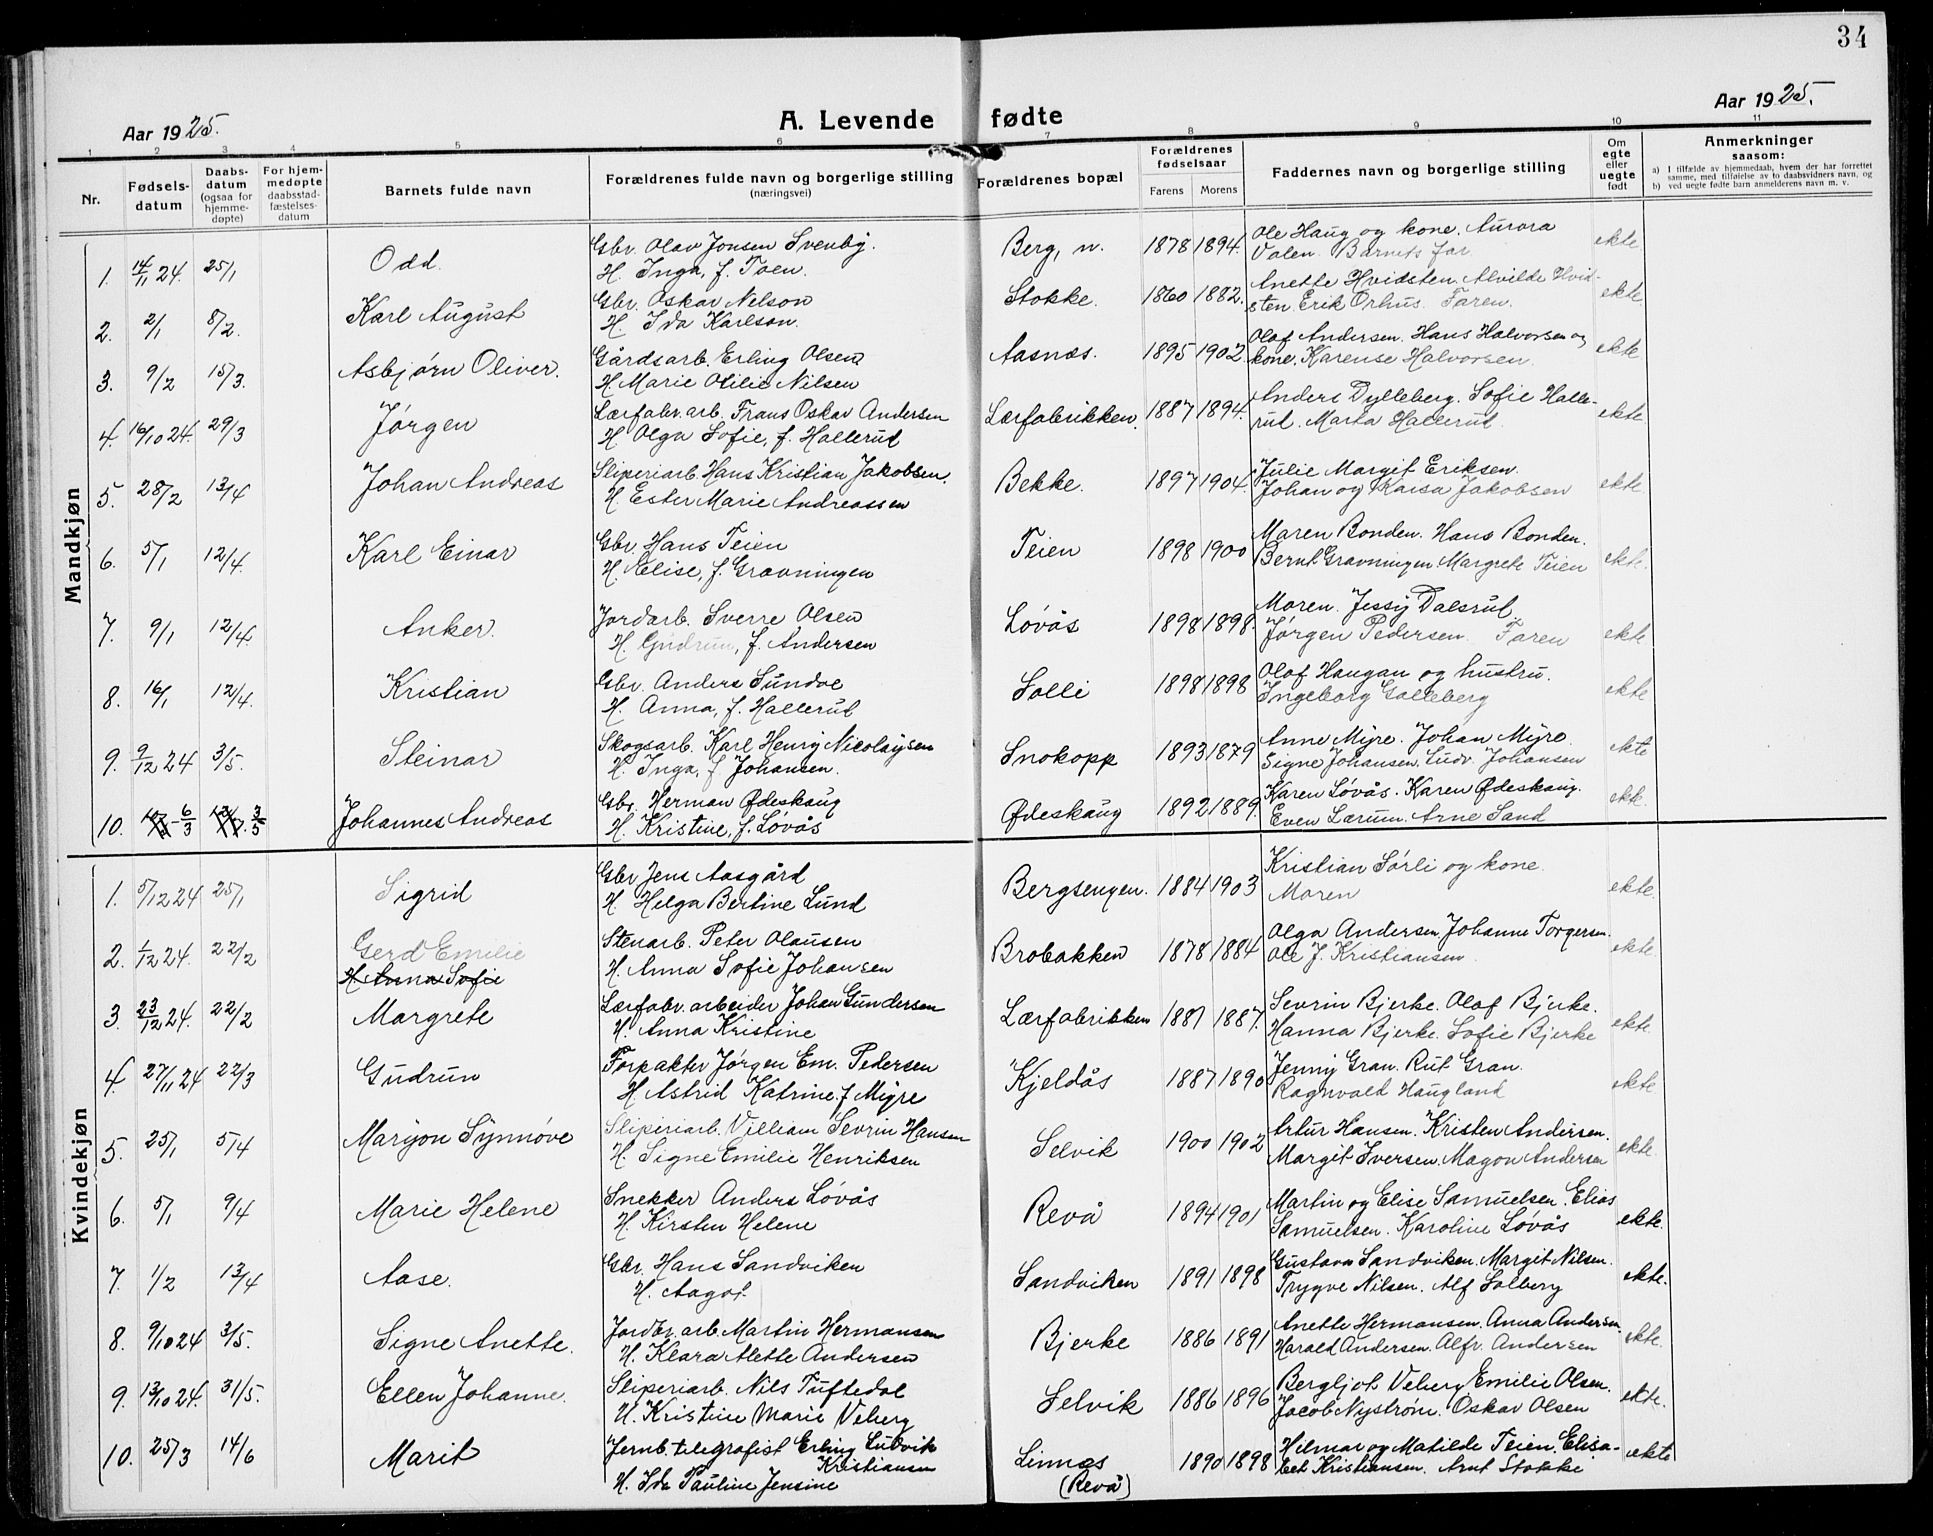 34
Aar 1925.
A. Levende fødte
Aar 1925.
1 2 3 4 5 6 7 8 9 10 11
Nr.
Fødsels-datum
Daabs-datum (ogsaa for hjemme-døpte)
For hjem-medøpte daabsstad-fæstelses-datum
Barnets fulde navn
Forældrenes fulde navn og borgerlige stilling (næringsvei)
Forældrenes bopæl
Forældrenes fødselsaar
Farens Morens
Faddernes navn og borgerlige stilling
Om egte eller uegte født
Anmerkninger saasom:
a) I tilfælde av hjemmedaab, hvem der har forrettet samme, med tilføielse av to daabsvidners navn, og
b) ved uegte fødte barn anmelderens navn m. v.
Mandkjøn
1. 14/11 24. 25/1 Odd. Gbr. Olav Jonsen Svenby. Berg, n. 1878 1894. Ole Haug og kone. Aurora ekte
H. Inga, f. Toen. Valen. Barnets far
2. 2/1 8/2. Karl August Gbr. Oskar Nelson Stokke. 1860 1882. Anette Hvidsten. Alvilde Hvid- ekte
H. Ida Karlson. sten. Erik Orhus. Faren.
3. 9/2 15/3. Asbjørn Oliver. Gårdsarb. Erling Olsen Aasnæs. 1895 1902. Olaf Andersen. Hans Halvorsen og ekte
H. Marie Otilie Nilsen kone. Karense Halvorsen.
4. 16/10 24. 29/3 Jørgen Lærfabr. arb. Frans Oskar Andersen Lærfabrikken. 1887 1894. Anders Dylleberg. Sofie Halle- ekte
H. Olga Sofie, f. Hallerud rud. Marta Hallerud.
5. 28/2 13/4 Johan Andreas Sliperiarb. Hans Kristian Jakobsen. Bekke. 1897 1904. Julie Margit Eriksen. ekte.
H. Ester Marie Andreassen Johan og Kaisa Jakobsen
6. 5/1 12/4. Karl Einar Gbr. Hans Teien Teien 1898 1900 Maren Bonden. Hans Bonden. ekte.
H. Elise, f. Gravningen Bernt Gravningen Margrete Teien
7. 9/1 12/4. Anker. Jordarb. Sverre Olsen Løvås 1898 1898. Moren. Jessy Dalsrud ekte
H. Gudrun, f. Andersen Jørgen Pedersen. Faren
8. 16/1 12/4. Kristian Gbr. Anders Sundve Solli 1898 1898 Olaf Haugan og hustru. ekte
H. Anna, f. Hallerud Ingeborg Galleberg
9. 9/12 24 3/5. Steinar Skogsarb. Karl Henry Nicolaysen Snokopp 1893 1879 Anne Myre. Johan Myre. ekte
H. Inga, f. Johansen. Signe Johansen. Ludv. Johansen
10. 6/3 3/5 Johannes Andreas Gbr. Herman Ødeskaug Ødeskaug 1892 1889. Karen Løvås. Karen Ødeskaug. ekte.
H. Kristine, f. Løvås Even Lærum. Arne Sand
Kvindekjøn
1. 5/12 24 25/1 Sigrid Gbr Jens Aasgård Bergsengen. 1884 1903 Kristian Sørli og kone. ekte.
H Helga Bertine Lund Moren
2. 1/12 24. 22/2 Gerd Emilie Stenarb. Peter Olausen Brobakken 1878 1884 Olga Andersen. Johanne Torgersen. ekte.
H Anna Sofie H. Anna Sofie Johansen Ole J. Kristiansen
3. 23/12 24. 22/2 Margrete Lærfabr. arbeider Johan Gundersen Lærfabrikken 1881 1887. Sevrin Bjerke. Olaf Bjerke. ekte.
H. Anna Kristine Hanna Bjerke. Sofie Bjerke
4. 27/11 24 22/3 Gudrun Forpakter Jørgen Em. Pedersen Kjeldås 1887 1890 Jenny Gran. Rut Gran. ekte
H Astrid Katrine f Myre Ragnvald Haugland
5. 25/1 5/4 Maryon Synnøve Sliperiarb. Villiam Sevrin Hansen Selvik 1900 1902 Artur Hansen. Kristen Andersen. ekte.
H. Signe Emilie Henriksen Margit Iversen. Magon Andersen
6. 5/1 9/4 Marie Helene Snekker Anders Løvås Revå 1894 1901 Martin og Elise Samuelsen. Elias ekte.
H. Kirsten Helene Samuelsen. Karoline Løvås
7. 1/2 13/4 Aase. Gbr. Hans Sandviken Sandviken 1891 1898 Gustava Sandviken. Margit Nilsen. ekte.
H. Aagot Trygve Nilsen. Alf Solberg
8. 9/10 24 3/5. Signe Anette. Jordbr. arb. Martin Hermansen Bjerke 1886 1891 Anette Hermansen. Anna Andersen. ekte.
H. Klara Alette Andersen Harald Andersen. Alfr. Andersen
9. 13/10 24. 31/5. Ellen Johanne. Sliperiarb. Nils Tuftedal Selvik 1886 1896 Bergljot Veberg. Emilie Olsen. ekte.
H. Kristine Marie Veberg Jacob Nystrøm. Oskar Olsen
10. 25/3 14/6 Marit Jernb. telegrafist Erling Ludvik Kristiansen Linnæs 1890 1898 Hilmar og Matilde Teien. Elisa- ekte
H. Ida Pauline Jensine (Revå) bet Kristiansen. Arnt Stokke